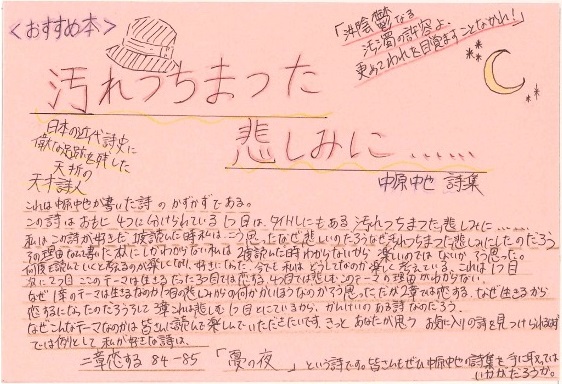 ＜おすすめ本＞
「沈陰鬱なる
汚濁の許容よ、
更めてわれを目覚ますことなかれ！」
汚れつちまつた
悲しみに……
日本の近代詩史に
偉大な足跡を残した
夭折の
天才詩人
中原中也 詩集
これは中原中也が書いた詩のかずかずである。
この詩はおもに4つに分けられている1つ目は、タイトルにもある汚れつちまつた悲しみに……
私はこの詩が好きだ1度読んだ時私はこう思ったなぜ悲しいのだろうなぜ汚れつちまつた悲しみにしたのだろう
その理由なんて書いた本人にしかわからない私は2度読んだ時わからないから楽しいのではないかそう思った。
何度も読んでいくと考えるのが楽しくなり、好きになった。今でも私はどうしてなのか楽しく考えている。これは1つ目
次に2つ目このテーマは生きるだった3つ目では恋する、4つ目では悲しむこのテーマの理由がわからない。
なぜ1章のテーマは生きるなのか1つ目の悲しみからの何かがいようなのかそう思った、だが2章では恋する、なぜ生きるから
恋するになったのだろうそして3章これは悲しむ1つ目とにているから、かんけいのある詩なのだろう。
なぜこんなテーマなのかは皆さんに読んで楽しんでいただきたいです。きっとあなたが思うお気に入りの詩を見つけられるはず
では例として私が好きな詩は、
二章恋する 84-85 「夏の夜」 という詩です。皆さんもぜひ中原中也の詩集を手に取っては
いかがだろうか。